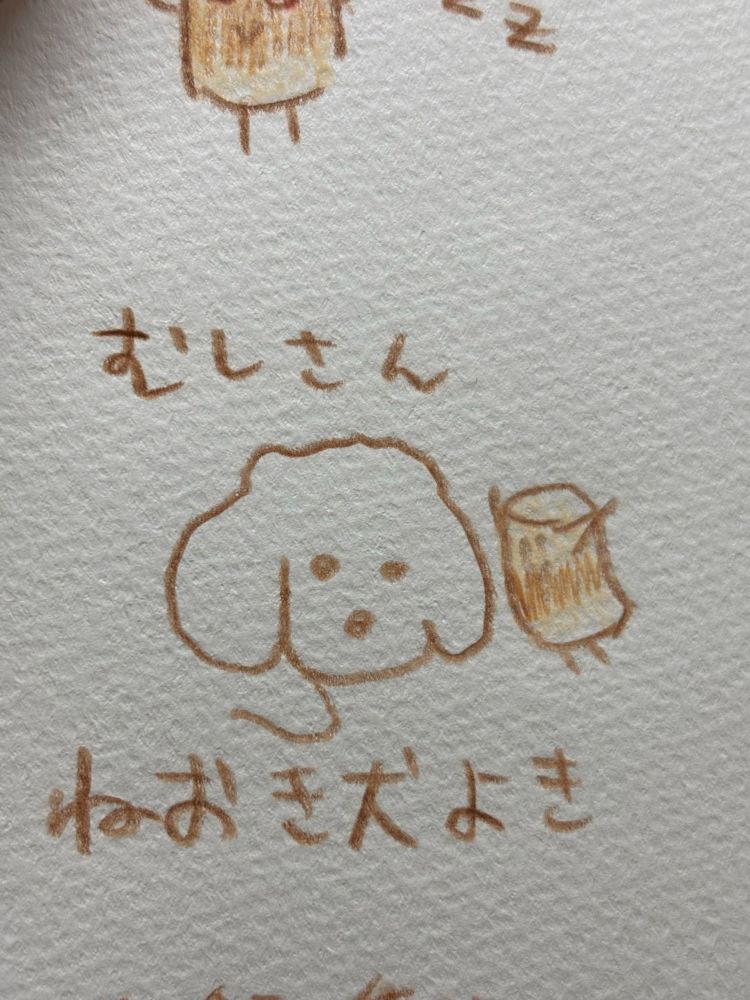 z z
むしさん
ねおき犬よき